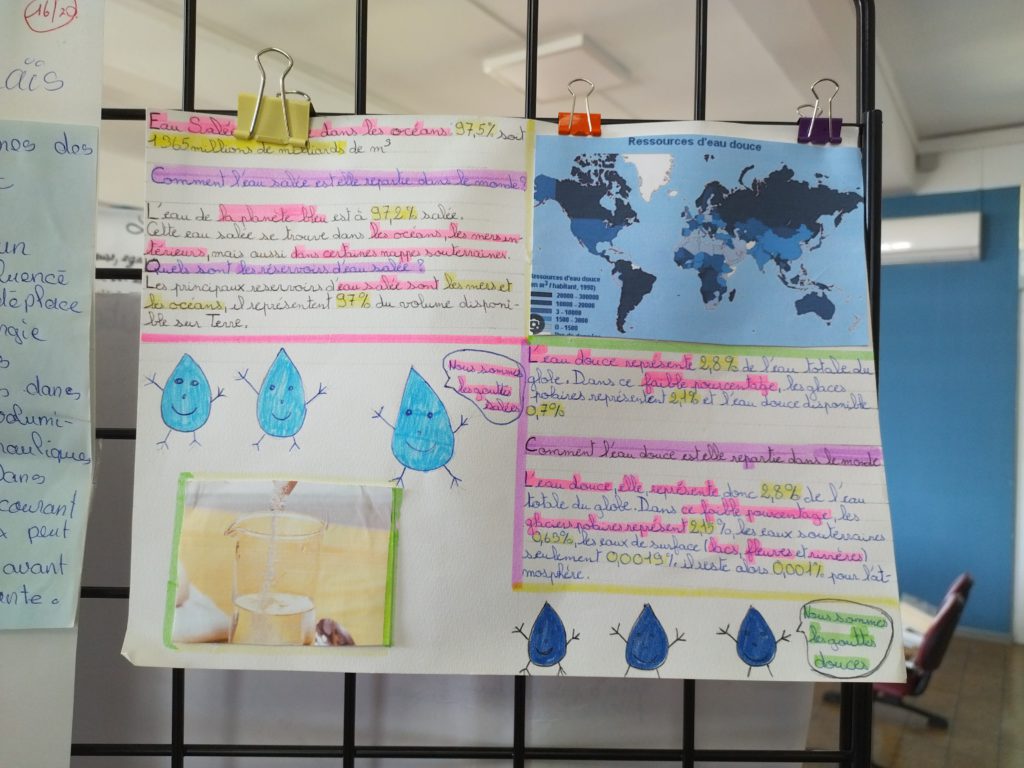 16/20
aïs
nes des
un
fluencé
déplace
rgie
s
s dans
olumi-
rauliques
Dans
courant
x peut
avant
ante.
Eau Salée dans les océans : 97,5% soit
1 365 millions de milliards de m³
Comment l'eau salée est elle repartie dans le monde ?
L'eau de la planète bleu est à 97,2% salée.
Cette eau salée se trouve dans les océans, les mers in-
térieurs, mais aussi dans certaines nappes souterraines.
Quels sont les réservoirs d'eau salée ?
Les principaux reservoirs d'eau salée sont les mers et
les océans, il représentent 97% du volume disponi-
ble sur Terre.
Nous sommes
les gouttes
salées
Ressources d'eau douce
Ressources d'eau douce
en m³ / habitant, 1990)
20000 - 300000
10000 - 20000
3 - 10000
1500 - 3000
0 - 1500
L'eau douce représente 2,8% de l'eau totale du
globe. Dans ce faible pourcentage, les glaces
polaires représentent 2,1% et l'eau douce disponible
0,7%
Comment l'eau douce est elle repartie dans le monde
L'eau douce, elle, représente donc 2,8% de l'eau
totale du globe. Dans ce faible pourcentage, les
glaciers polaires représent 2,15%, les eaux souterraines
0,63%, les eaux de surface (lacs, fleuves et rivières)
seulement 0,0019% il reste alors 0,001% pour l'at-
mosphère.
Nous sommes
les gouttes
douces